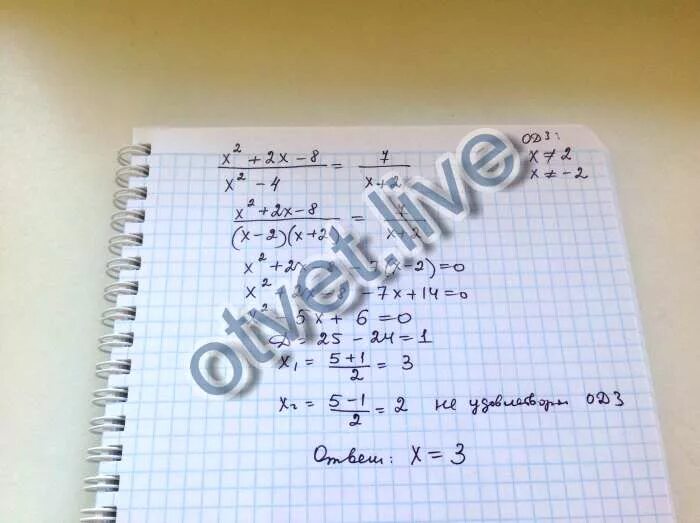 x² + 2x - 8 / x² - 4 = 7 / x+2
ОДЗ:
x ≠ 2
x ≠ -2
x² + 2x - 8 / (x-2)(x+2) = 7 / x+2
x² + 2x - 8 - 7(x-2) = 0
x² + 2x - 8 - 7x + 14 = 0
x² - 5x + 6 = 0
D = 25 - 24 = 1
x₁ = 5+1 / 2 = 3
x₂ = 5-1 / 2 = 2 не удовлетворяет ОДЗ
Ответ: x = 3
otvet.live